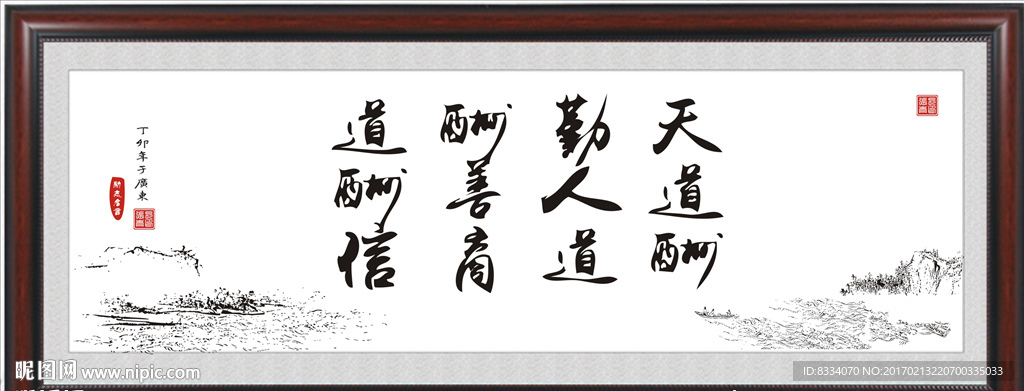 天道酬
勤人道
酬善商
道酬信
丁卯年于廣東
昵图网 www.nipic.com
ID:8334070 NO:20170213220700335033